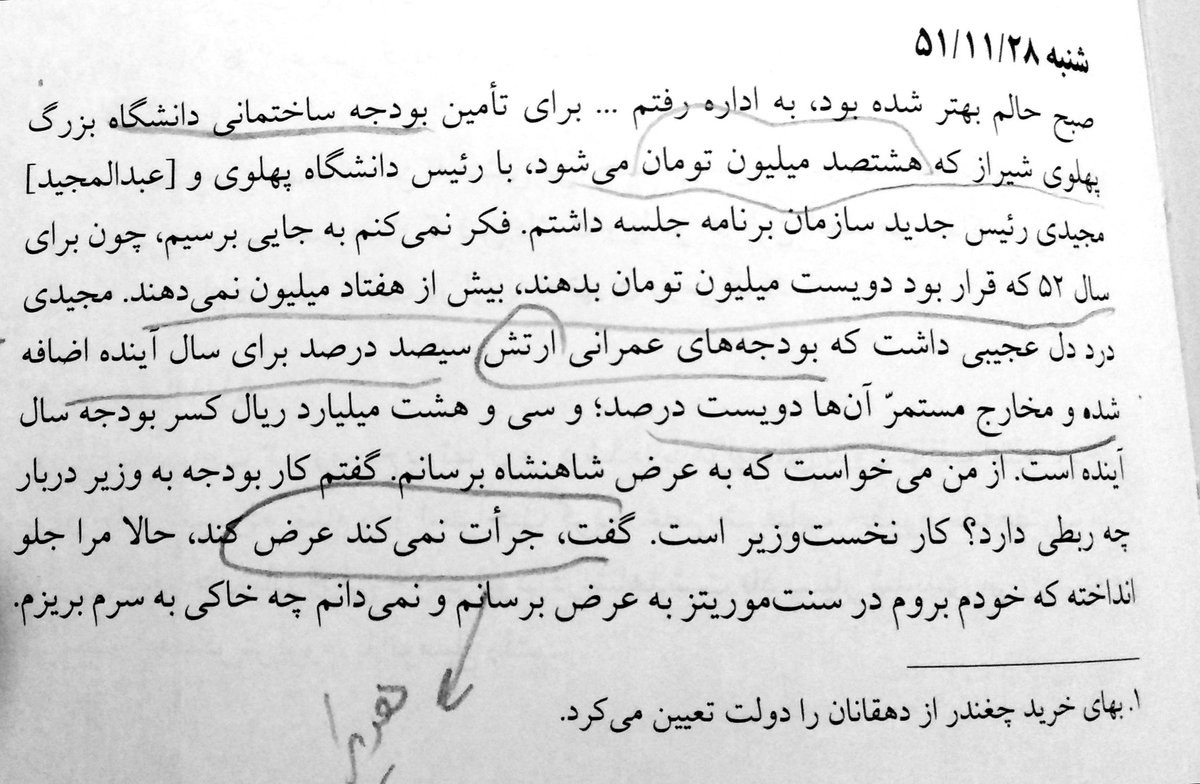 شنبه ۵۱/۱۱/۲۸
صبح حالم بهتر شده بود، به اداره رفتم ... برای تأمین بودجه ساختمانی دانشگاه بزرگ
پهلوی شیراز که هشتصد میلیون تومان می‌شود، با رئیس دانشگاه پهلوی و [عبدالمجید]
مجیدی رئیس جدید سازمان برنامه جلسه داشتم. فکر نمی‌کنم به جایی برسیم، چون برای
سال ۵۲ که قرار بود دویست میلیون تومان بدهند، بیش از هفتاد میلیون نمی‌دهند. مجیدی
درد دل عجیبی داشت که بودجه‌های عمرانی ارتش سیصد درصد برای سال آینده اضافه
شده و مخارج مستمرّ آن‌ها دویست درصد؛ و سی و هشت میلیارد ریال کسر بودجه سال
آینده است. از من می‌خواست که به عرض شاهنشاه برسانم. گفتم کار بودجه به وزیر دربار
چه ربطی دارد؟ کار نخست‌وزیر است. گفت، جرأت نمی‌کند عرض کند، حالا مرا جلو
انداخته که خودم بروم در سنت‌موریتز به عرض برسانم و نمی‌دانم چه خاکی به سرم بریزم.
۱. بهای خرید چغندر از دهقانان را دولت تعیین می‌کرد.